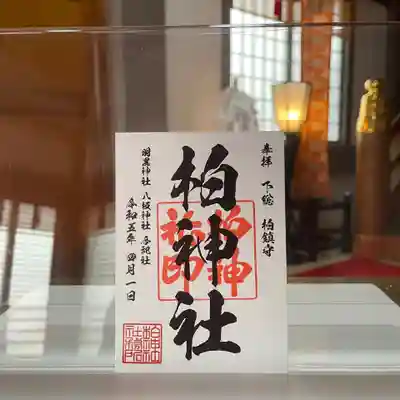 奉拝 下総 柏鎮守
柏神社
羽黒神社 八坂神社 合祀社
令和五年 四月一日